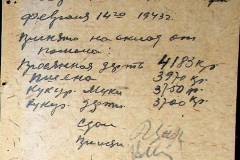 Февраля 14го 1943г.
Принято на склад от
помола:
Просяная дерть 4183 кг.
Пшена 3970 кг.
Кукур. муки 3750 кг.
Кукур. дерти 3700 кг.
Сдал
Принял